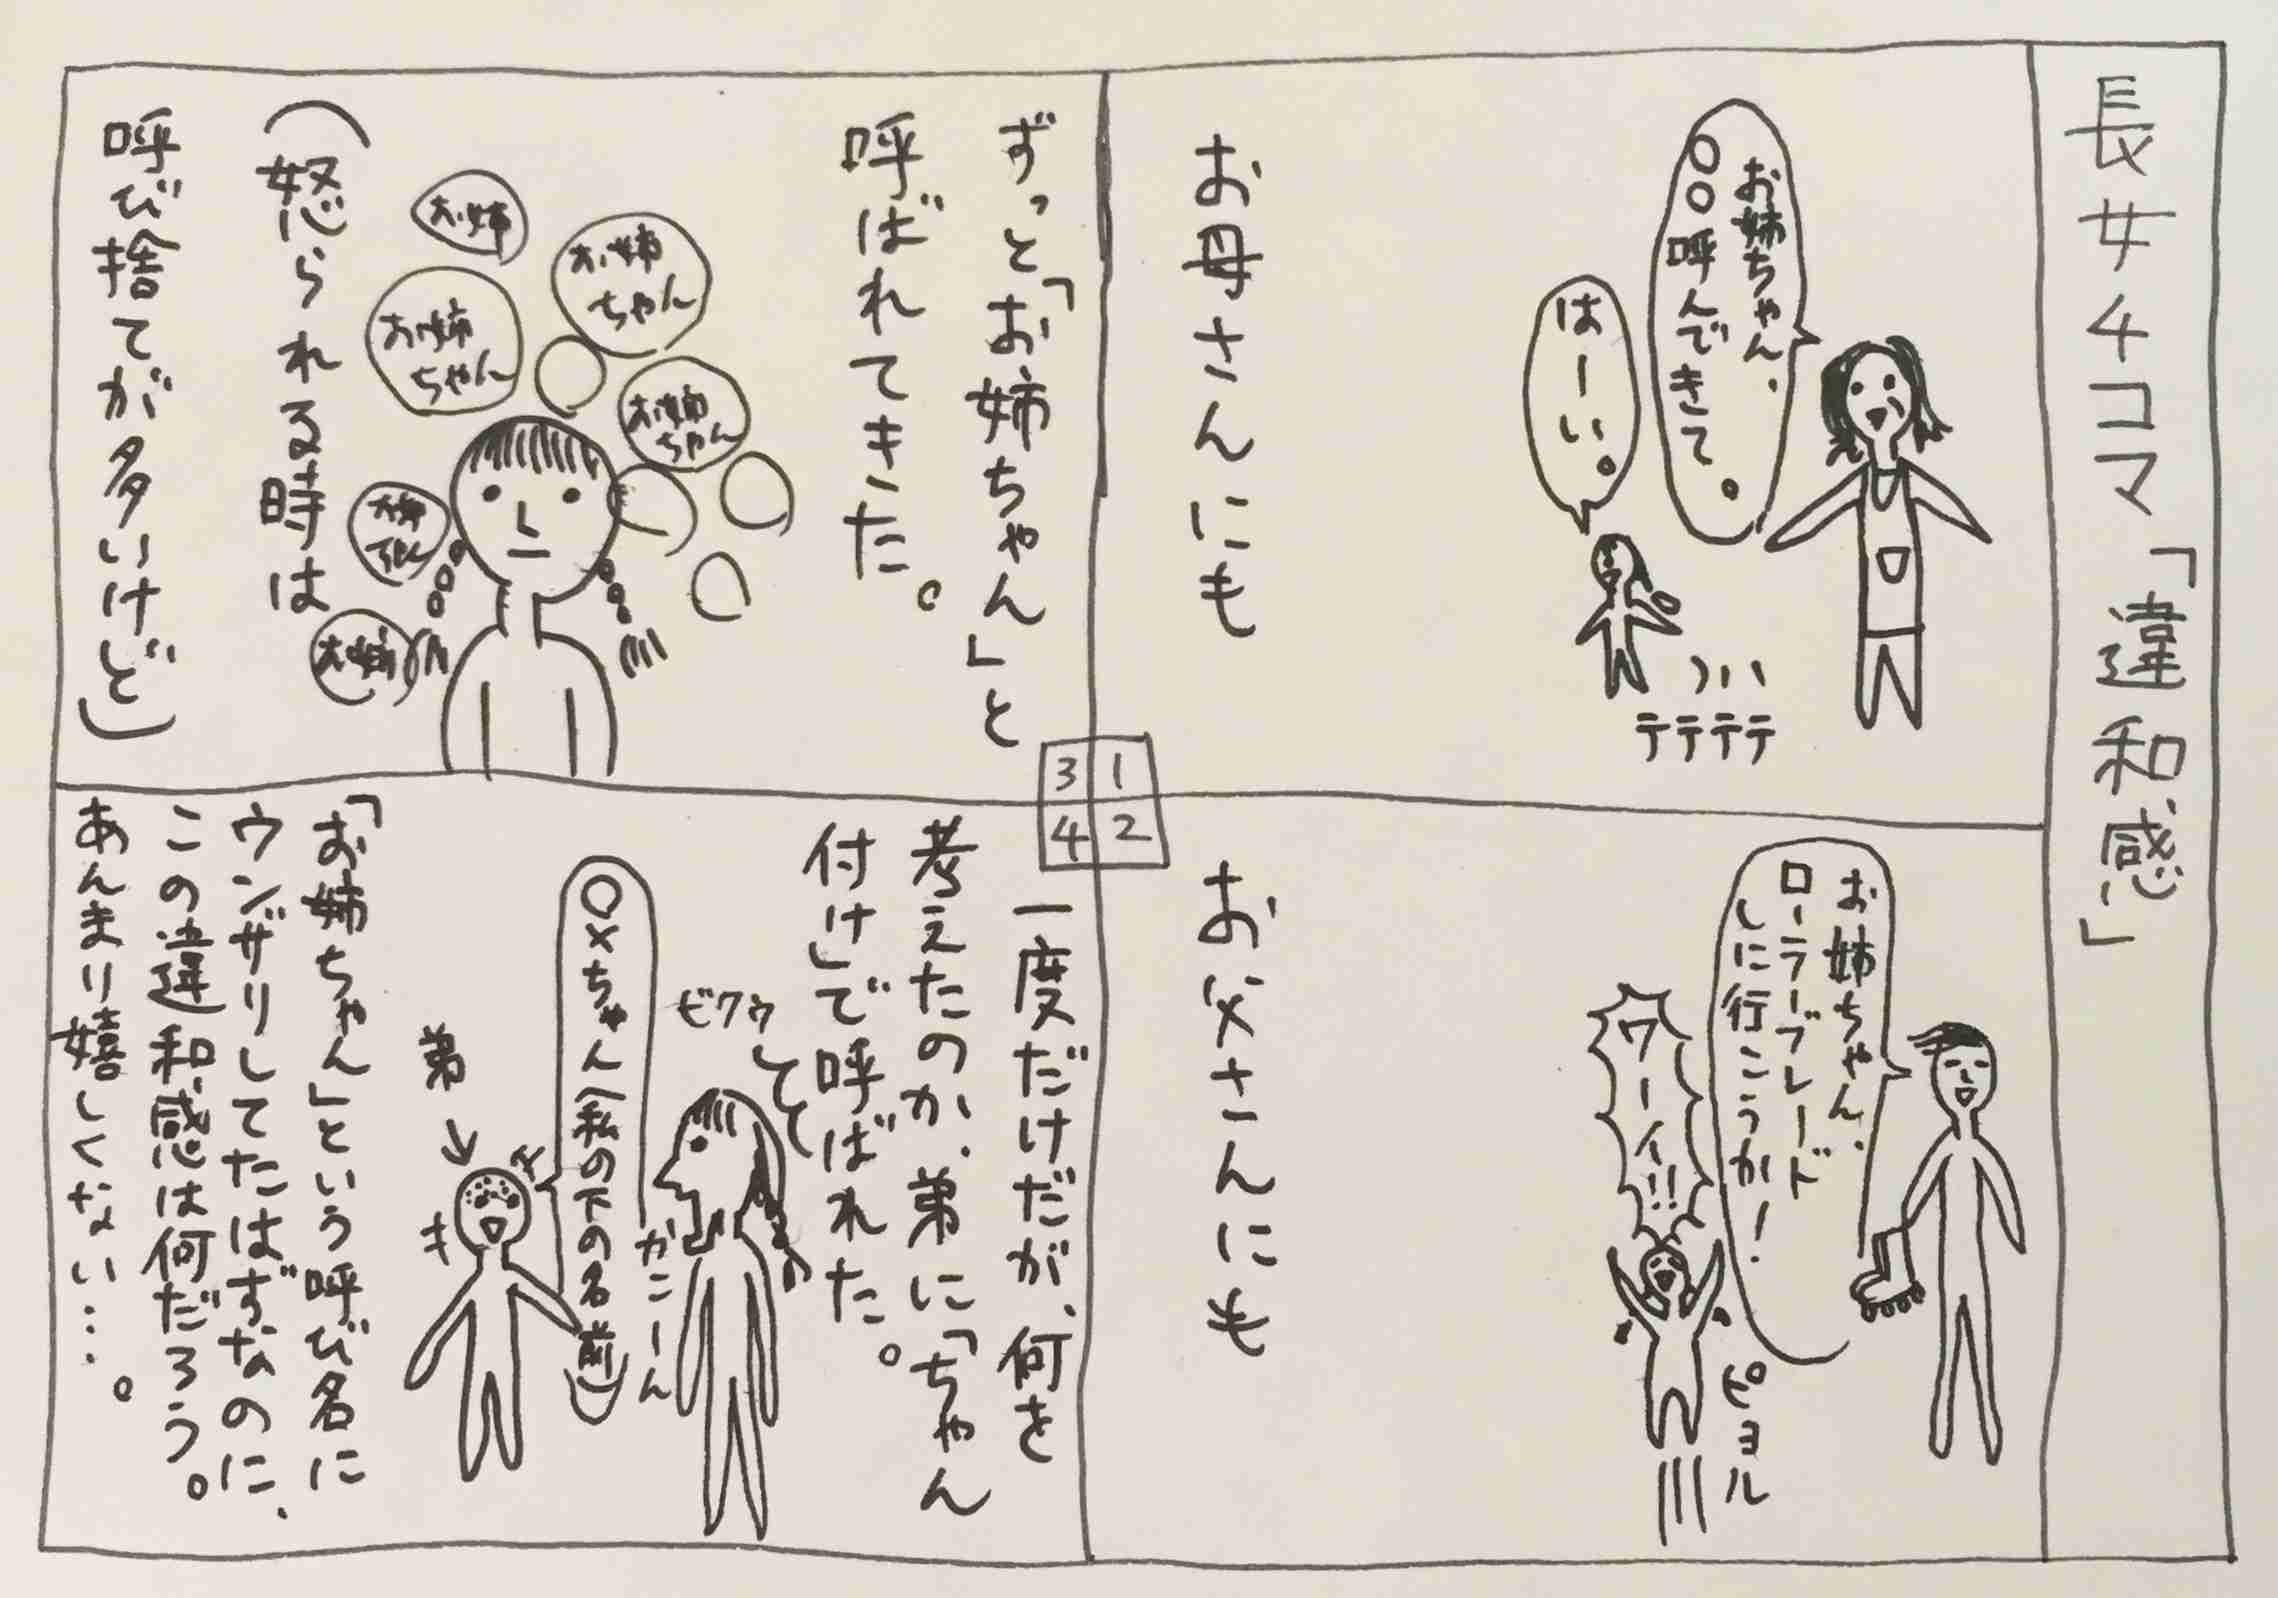 長女4コマ「違和感」
お姉ちゃん、
○○呼んできて。
はーい。
テテテテ
お母さんにも
お姉ちゃん、
ローラーブレード
しに行こうか!
ワーイ!!
ピョル
お父さんにも
ずっと「お姉ちゃん」と
呼ばれてきた。
お姉
ちゃん
お姉
ちゃん
お姉
お姉
ちゃん
お姉
ちゃん
お姉
(怒られる時は
呼び捨てが多いけど)
3
1
4
2
一度だけだが、何を
考えたのか、弟に「ちゃん
付け」で呼ばれた。
ビクゥ
がこーん
○×ちゃん(私の下の名前)
弟
キ
キ
「お姉ちゃん」という呼び名に
ウンザリしてたはずなのに、
この違和感は何だろう。
あんまり嬉しくない…。